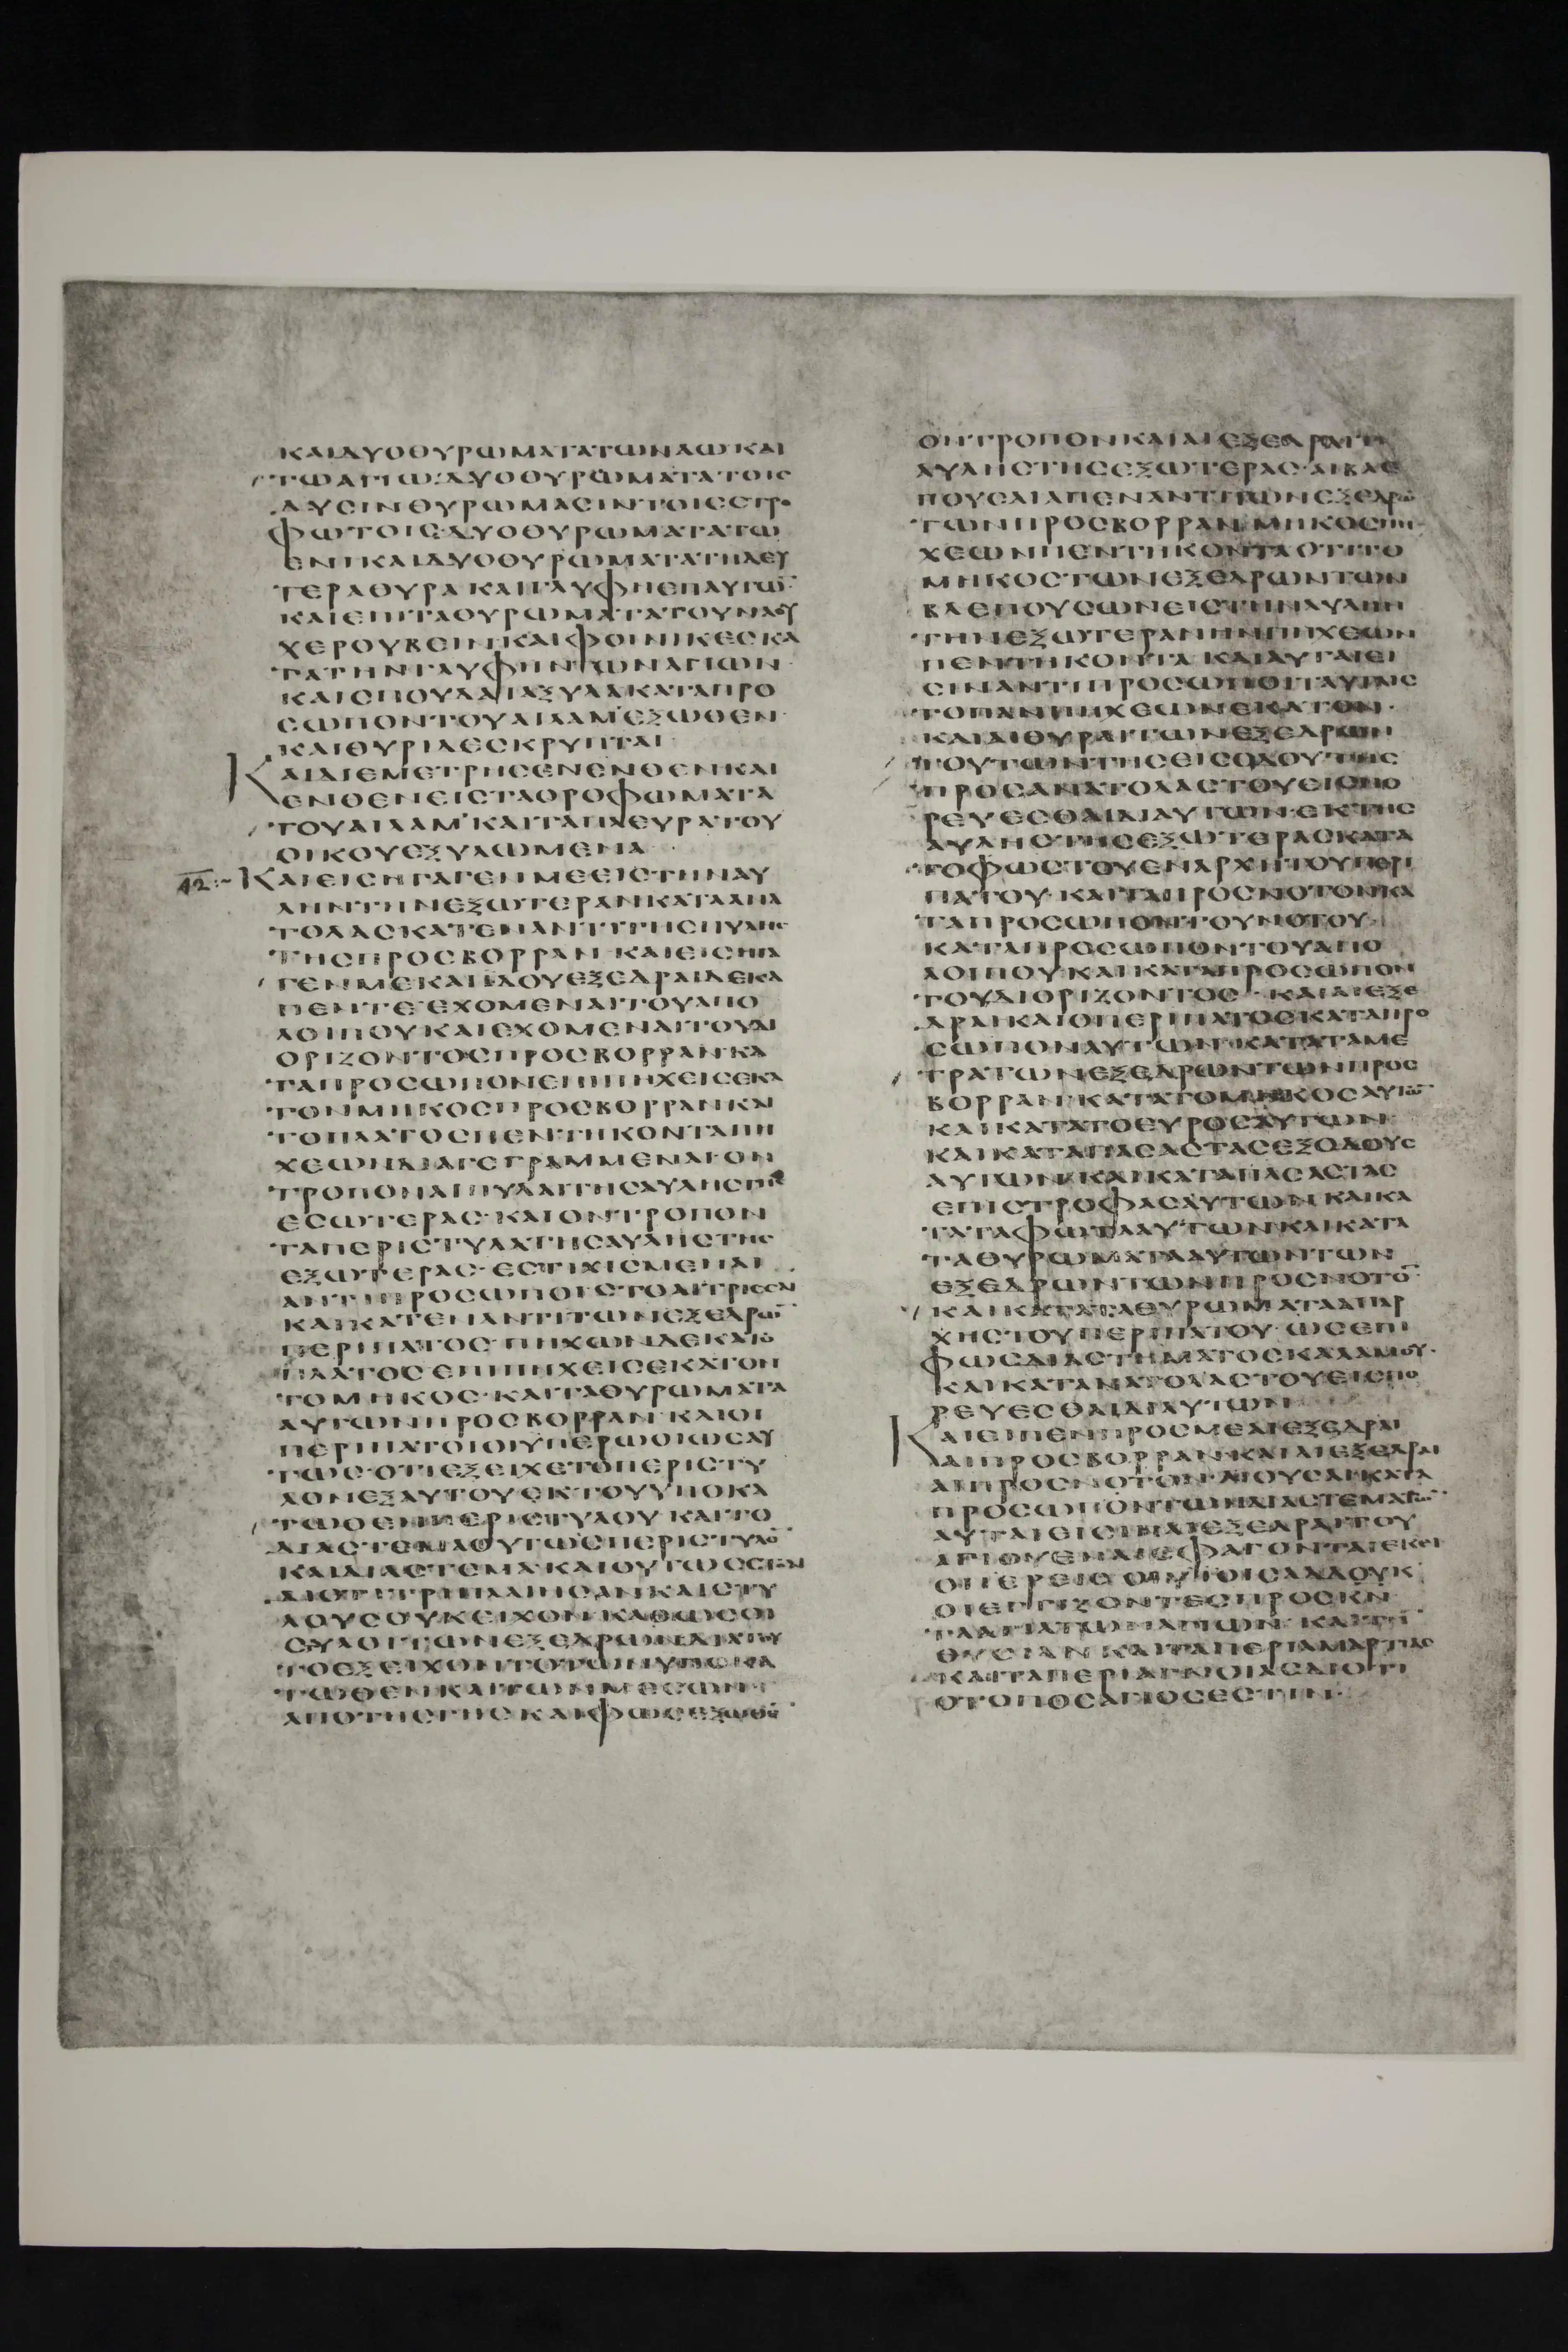 ΚΑΙΔΥΟΘΥΡΩΜΑΤΑΤΩΝΑΩΚΑΙ
ΤΩΑΓΙΩ·ΔΥΟΘΥΡΩΜΑΤΑΤΟΙС
ΔΥСΙΝΘΥΡΩΜΑСΙΝΤΟΙССΤΡΟ
ΦΩΤΟΙС·ΔΥΟΘΥΡΩΜΑΤΑΤΩ
ΕΝΙΚΑΙΔΥΟΘΥΡΩΜΑΤΑΤΗΔΕΥ
ΤΕΡΑΘΥΡΑΚΑΙΓΛΥΦΗΕΠΑΥΤΩ̅
ΚΑΙΕΠΙΤΑΘΥΡΩΜΑΤΑΤΟΥΝΑΟΥ
ΧΕΡΟΥΒΕΙΝΚΑΙΦΟΙΝΙΚΕСΚΑ
ΤΑΤΗΝΓΛΥΦΗΝΤΩΝΑΓΙΩΝ
ΚΑΙСΠΟΥΔΑΙΑΞΥΛΑΚΑΤΑΠΡΟ
СΩΠΟΝΤΟΥΑΙΛΑΜ·ΕΞΩΘΕΝ
ΚΑΙΘΥΡΙΔΕСΚΡΥΠΤΑΙ
ΚΑΙΔΙΕΜΕΤΡΗСΕΝΕΝΘΕΝΚΑΙ
ΕΝΘΕΝΕΙСΤΑΟΡΟΦΩΜΑΤΑ
ΤΟΥΑΙΛΑΜ·ΚΑΙΤΑΠΛΕΥΡΑΤΟΥ
ΟΙΚΟΥΕΞΥΛΩΜΕΝΑ
42:~ ΚΑΙΕΙСΗΓΑΓΕΝΜΕΕΙСΤΗΝΑΥ
ΛΗΝΤΗΝΕΞΩΤΕΡΑΝΚΑΤΑΑΝΑ
ΤΟΛΑСΚΑΤΕΝΑΝΤΙΤΗСΠΥΛΗС
ΤΗСΠΡΟСΒΟΡΡΑΝ·ΚΑΙΕΙСΗΓΑ
ΓΕΝΜΕΚΑΙΙΔΟΥΕΞΕΔΡΑΙΔΕΚΑ
ΠΕΝΤΕ·ΕΧΟΜΕΝΑΙΤΟΥΑΠΟ
ΛΟΙΠΟΥΚΑΙΕΧΟΜΕΝΑΙΤΟΥΔΙ
ΟΡΙΖΟΝΤΟСΠΡΟСΒΟΡΡΑΝ·ΚΑ
ΤΑΠΡΟСΩΠΟΝΕΠΙΠΗΧΕΙСΕΚΑ
ΤΟΝΜΗΚΟСΠΡΟСΒΟΡΡΑΝΚΑΙ
ΤΟΠΛΑΤΟСΠΕΝΤΗΚΟΝΤΑΠΗ
ΧΕΩΝΔΙΑΓΕΓΡΑΜΜΕΝΑΙΟΝ
ΤΡΟΠΟΝΑΙΠΥΛΑΙΤΗСΑΥΛΗСΤΗС
ΕСΩΤΕΡΑС·ΚΑΙΟΝΤΡΟΠΟΝ
ΤΑΠΕΡΙСΤΥΛΑΤΗСΑΥΛΗСΤΗС
ΕΞΩΤΕΡΑС·ΕСΤΙΧΙСΜΕΝΑΙ
ΑΝΤΙΠΡΟСΩΠΟΙСΤΟΑΙΤΡΙССΑΙ
ΚΑΙΚΑΤΕΝΑΝΤΙΤΩΝΕΞΕΔΡΩ̅
ΠΕΡΙΠΑΤΟС·ΠΗΧΩΝΔΕΚΑΤΟ
ΠΛΑΤΟСΕΠΙΠΗΧΕΙСΕΚΑΤΟΝ
ΤΟΜΗΚΟС·ΚΑΙΤΑΘΥΡΩΜΑΤΑ
ΑΥΤΩΝΠΡΟСΒΟΡΡΑΝ·ΚΑΙΟΙ
ΠΕΡΙΠΑΤΟΙΟΙΥΠΕΡΩΟΙΩСΑΥ
ΤΩС·ΟΤΙΕΞΕΙΧΕΤΟΠΕΡΙСΤΥ
ΛΟΝΕΞΑΥΤΟΥΕΚΤΟΥΥΠΟΚΑ
ΤΩΘΕΝΠΕΡΙСΤΥΛΟΥ·ΚΑΙΤΟ
ΔΙΑСΤΕΜΑΟΥΤΩСΠΕΡΙСΤΥΛΟ̅
ΚΑΙΔΙΑСΤΕΜΑ·ΚΑΙΟΥΤΩССΤΟΑΙ
ΔΙΟΤΙΤΡΙΠΛΑΙΗСΑΝΚΑΙСΤΥ
ΛΟΥСΟΥΚΕΙΧΟΝ·ΚΑΘΩСΟΙ
СΥΛΟΙΤΩΝΕΞΕΔΡΩΝΔΙΑΤΟΥ
ΤΟΕΞΕΙΧΟΝΤΟΤΩΝΥΠΟΚΑ
ΤΩΘΕΝΚΑΙΤΩΝΜΕСΩΝ
ΑΠΟΤΗСΓΗС·ΚΑΙΦΩСΕΞΩΘΕ̅
ΟΝΤΡΟΠΟΝΚΑΙΑΙΕΞΕΔΡΑΙΤΗС
ΑΥΛΗСΤΗСΕΞΩΤΕΡΑС·ΑΙΒΛΕ
ΠΟΥСΑΙΑΠΕΝΑΝΤΙΤΩΝΕΞΕΔΡΩ̅
ΤΩΝΠΡΟСΒΟΡΡΑΝ·ΜΗΚΟСΠΗ
ΧΕΩΝΠΕΝΤΗΚΟΝΤΑΟΤΙΤΟ
ΜΗΚΟСΤΩΝΕΞΕΔΡΩΝΤΩΝ
ΒΛΕΠΟΥСΩΝΕΙСΤΗΝΑΥΛΗΝ
ΤΗΝΕΞΩΤΕΡΑΝΗΝΠΗΧΕΩΝ
ΠΕΝΤΗΚΟΝΤΑ·ΚΑΙΑΥΤΑΙΕΙ
СΙΝΑΝΤΙΠΡΟСΩΠΟΙΤΑΥΤΑΙС
ΤΟΠΑΝΠΗΧΕΩΝΕΚΑΤΟΝ·
ΚΑΙΑΙΘΥΡΑΙΤΩΝΕΞΕΔΡΩΝ
ΤΟΥΤΩΝΤΗСΕΙСΟΔΟΥΤΗС
ΠΡΟСΑΝΑΤΟΛΑСΤΟΥΕΙСΠΟ
ΡΕΥΕСΘΑΙΔΙΑΥΤΩΝ·ΕΚΤΗС
ΑΥΛΗСΤΗСΕΞΩΤΕΡΑСΚΑΤΑ
ΤΟΦΩСΤΟΥΕΝΑΡΧΗΤΟΥΠΕΡΙ
ΠΑΤΟΥ·ΚΑΙΤΑΠΡΟСΝΟΤΟΝΚΑ
ΤΑΠΡΟСΩΠΟΝΤΟΥΝΟΤΟΥ
ΚΑΤΑΠΡΟСΩΠΟΝΤΟΥΑΠΟ
ΛΟΙΠΟΥΚΑΙΚΑΤΑΠΡΟСΩΠΟΝ
ΤΟΥΔΙΟΡΙΖΟΝΤΟС·ΚΑΙΑΙΕΞΕ
ΔΡΑΙΚΑΙΟΠΕΡΙΠΑΤΟСΚΑΤΑΠΡΟ
СΩΠΟΝΑΥΤΩΝ·ΚΑΤΑΤΑΜΕ
ΤΡΑΤΩΝΕΞΕΔΡΩΝΤΩΝΠΡΟС
ΒΟΡΡΑΝ·ΚΑΤΑΤΟΜΗΚΟСΑΥΤΩ̅
ΚΑΙΚΑΤΑΤΟΕΥΡΟСΑΥΤΩΝ
ΚΑΙΚΑΤΑΠΑСΑСΤΑСΕΞΟΔΟΥС
ΑΥΤΩΝ·ΚΑΙΚΑΤΑΠΑСΑСΤΑС
ΕΠΙСΤΡΟΦΑСΑΥΤΩΝ·ΚΑΙΚΑ
ΤΑΤΑΦΩΤΑΑΥΤΩΝ·ΚΑΙΚΑΤΑ
ΤΑΘΥΡΩΜΑΤΑΑΥΤΩΝΤΩΝ
ΕΞΕΔΡΩΝΤΩΝΠΡΟСΝΟΤΟ̅
ΚΑΙΚΑΤΑΤΑΘΥΡΩΜΑΤΑΑΠΑΡ
ΧΗСΤΟΥΠΕΡΙΠΑΤΟΥ·ΩСΕΠΙ
ΦΩСΔΙΑСΤΗΜΑΤΟСΚΑΛΑΜΟΥ·
ΚΑΙΚΑΤΑΝΑΤΟΛΑСΤΟΥΕΙСΠΟ
ΡΕΥΕСΘΑΙΔΙΑΥΤΩΝ
ΚΑΙΕΙΠΕΝΠΡΟСΜΕΑΙΕΞΕΔΡΑΙ
ΑΙΠΡΟСΒΟΡΡΑΝ·ΚΑΙΑΙΕΞΕΔΡΑΙ
ΑΙΠΡΟСΝΟΤΟΝ·ΑΙΟΥСΑΙΚΑΤΑ
ΠΡΟСΩΠΟΝΤΩΝΔΙΑСΤΕΜΑΤΩ̅
ΑΥΤΑΙΕΙСΙΝΑΙΕΞΕΔΡΑΙΤΟΥ
ΑΓΙΟΥΕΝΑΙСΦΑΓΟΝΤΑΙΕΚΕΙ
ΟΙΙΕΡΕΙСΟΙΥΙΟΙСΑΔΔΟΥΚ
ΟΙΕΓΓΙΖΟΝΤΕСΠΡΟСΚΝ
ΤΑΑΓΙΑΤΩΝΑΓΙΩΝ·ΚΑΙΤΗ̅
ΘΥСΙΑΝ·ΚΑΙΤΑΠΕΡΙΑΜΑΡΤΙΑС
ΚΑΙΤΑΠΕΡΙΑΓΝΟΙΑСΔΙΟΤΙ
ΟΤΟΠΟСΑΓΙΟСΕСΤΙΝ·